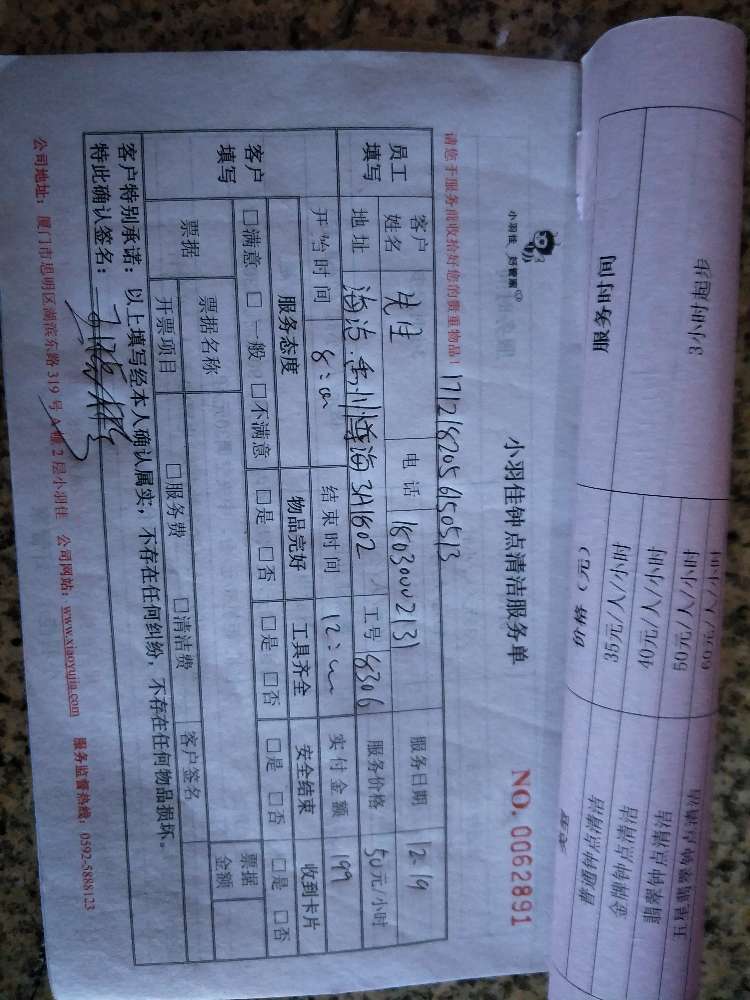 小羽佳 好管家
小羽佳钟点清洁服务单
NO. 0062891
请您于服务前收拾好您的贵重物品！
1712182056150513
员工填写 客户姓名 先生 电话 18030002131 服务日期 12.19
地址 3A1802 工号 18306 服务价格 50元/小时
客户填写 开始时间 8:00 结束时间 12:00 实付金额 199
服务态度 物品完好 工具齐全 安全结束 收到卡片
□满意 □一般 □不满意 □是 □否 □是 □否 □是 □否 □是 □否
票据 票据名称 客户签名 票据金额
开票项目 □服务费 □清洁费
客户特别承诺：以上填写经本人确认属实，不存在任何纠纷，不存在任何物品损坏。
特此确认签名：
公司地址：厦门市思明区湖滨东路 319 号 A 幢 2 层小羽佳 公司网站：www.xiaoyujia.com 服务监督热线：0592-5888123
服务时间 价格（元）
3小时起
35元/人/小时
40元/人/小时
50元/人/小时
60元/人/小时